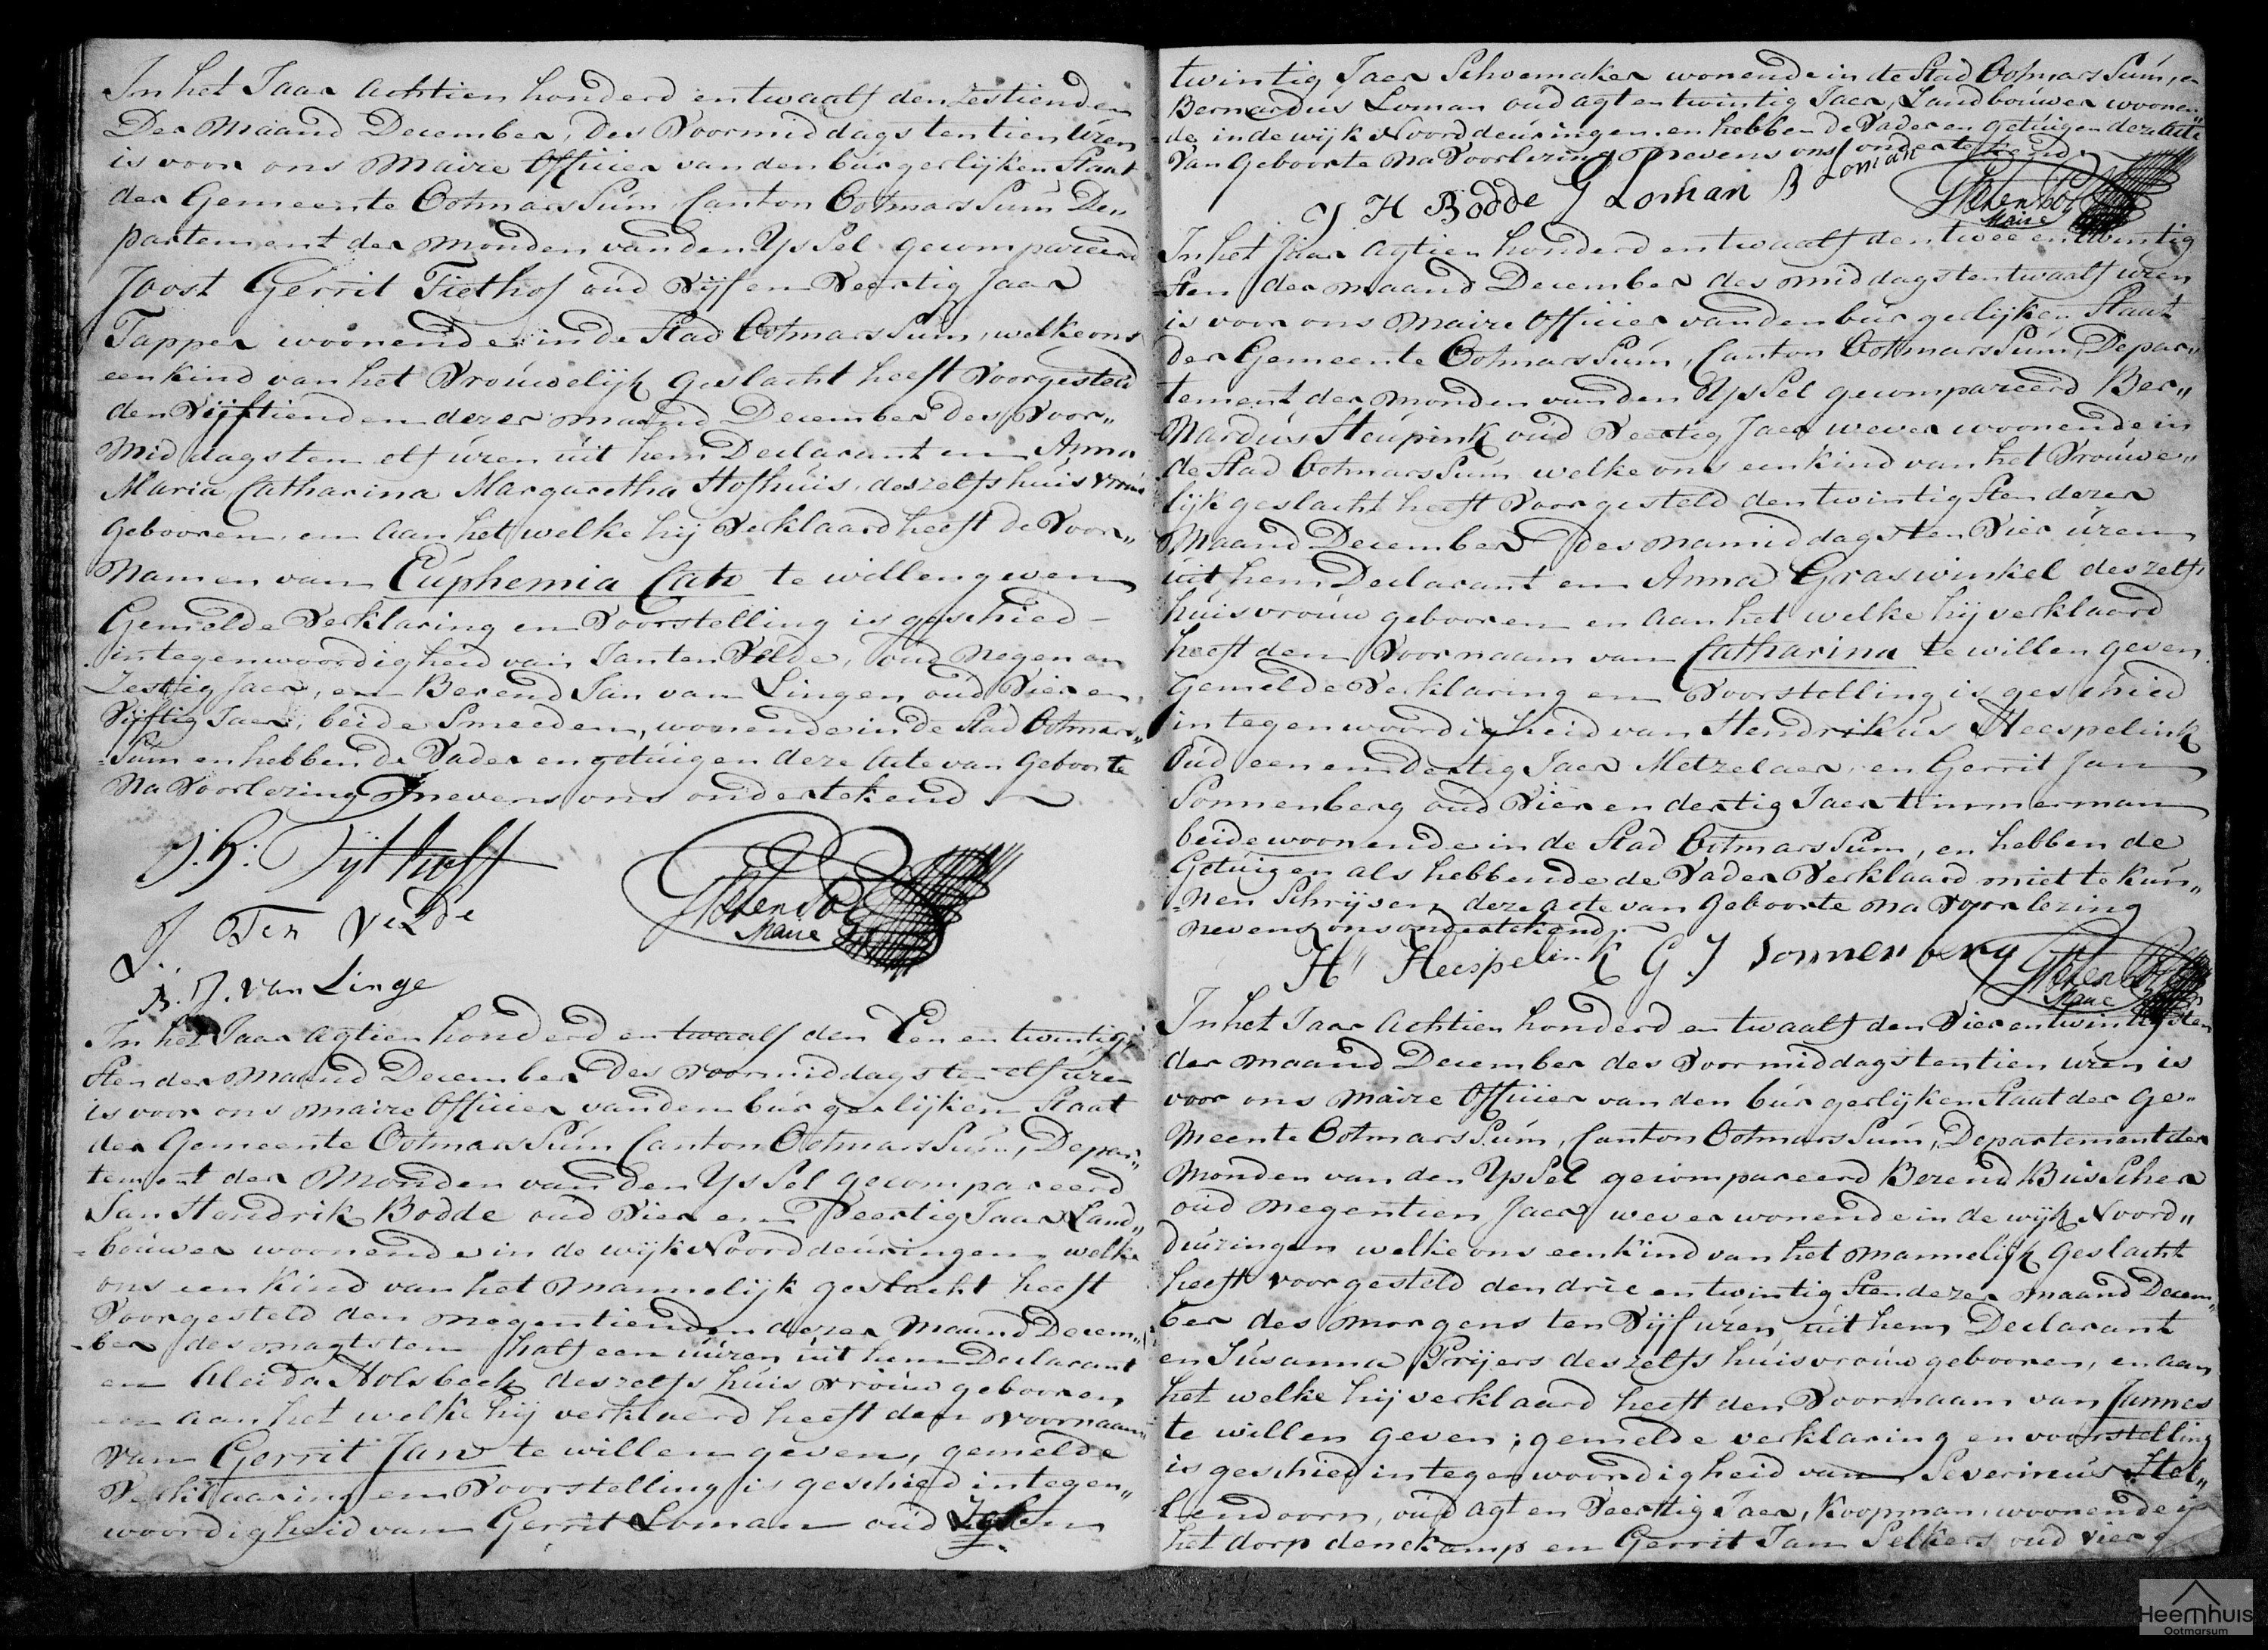 In het Jaar Achtien honderd en twaalf den Zestienden
Der Maand December, Des Voormiddags ten tien Uren
is voor ons Maire Officier van den burgerlijken Staat
der Gemeente Ootmarssum, Canton Ootmarssum De„
partement der Monden van den Yssel gecompareerd
Joost Gerrit Tiethof oud Vijf en Veertig Jaar
Tapper woonende in de Stad Ootmarssum, welke ons
een kind van het Vrouwelijk Geslacht heeft Voorgesteld
den Vijftienden dezer maand December des Voor„
Middags ten elf uren uit hem Declarant en Anna
Maria Catharina Margaretha Hofhuis, deszelfs huisvrouw
Gebooren, en aan het welke hij Verklaard heeft de Voor„
Namen van Euphemia Cato te willen geven
Gemelde Verklaring en Voorstelling is geschied
in tegenwoordigheid van Jan ten Velde, oud Negen en
Zestig Jaer, en Berend Jan van Lingen oud Vier en
Vijftig Jaer, beide Smeeden, wonende in de Stad Ootmars„
Sum en hebben de Vader en getuigen deze Acte van Geboorte
Na Voorlezing nevens ons ondertekend
J. G. Tijthoff
J Ten Velde
B. J. van Linge
Maire
In het Jaar Agtien honderd en twaalf den Een en twintig
sten der Maand December Des voormiddags ten elf uren
is voor ons maire Officier van den burgerlijken Staat
der Gemeente Ootmarssum Canton Ootmarssum, Depar„
tement der Monden van den Yssel gecompareerd
Jan Hendrik Bodde oud Vier en Veertig Jaar Land„
bouwer woonende in de wijk Noorddeuringen, welke
ons een Kind van het Mannelijk geslacht heeft
Voorgesteld den Negentienden dezer Maand Decem„
ber des nagts ten half een uuren uit hem Declarant
en Aleida Holsbeek deszelfs huisvrouw gebooren,
en aan het welke hij verklaerd heeft den voornaam
van Gerrit Jan te willen geven, gemelde
Verklaaring en Voorstelling is geschied in tegen„
woordigheid van Gerrit Loman oud
twintig Jaer Schoemaker wonende in de Stad Ootmarssum, en
Bernardus Loman oud agt en twintig Jaer, Landbouwer woonen„
de in de wijk Noorddeuringen en hebben de Vader en getuigen deze Acte
Van Geboorte na Voorlezing nevens ons ondertekend
J H Bodde G Loman B Loman
Maire
In het Jaar Agtien honderd en twaalf den twee en twintig
sten der maand December des middags ten twaalf uren
is voor ons Maire Officier van den burgerlijken Staat
der Gemeente Ootmarssum, Canton Ootmarssum, Depar„
tement der monden van den Yssel gecompareerd Ber„
nardus Heupink oud Veertig Jaer wever woonende in
de Stad Ootmarssum welke ons een kind van het Vrouwe„
lijk geslacht heeft Voorgesteld den twintigsten dezer
Maand December des namiddags ten Vier uren
uit hem Declarant en Anna Graswinkel deszelfs
huisvrouw gebooren en aan het welke hij verklaard
heeft den Voornaam van Catharina te willen geven.
Gemelde Verklaring en Voorstelling is geschied
in tegenwoordigheid van Hendrikus Heespelink
Oud een en dertig Jaer Metzelaer, en Gerrit Jan
Sonnenberg oud Vier en dertig Jaer timmerman
beide woonende in de Stad Ootmarssum, en hebben de
Getuigen als hebbende de Vader Verklaard niet te Kun„
nen Schrijven deze acte van Geboorte na Voorlezing
nevens ons ondertekend.
H Heespelink G J Sonnenberg
Maire
In het Jaar Achtien honderd en twaalf den Vier en twintigsten
der maand December des Voormiddags ten tien uren is
voor ons Maire Officier van den burgerlijken Staat der Ge„
meente Ootmarssum, Canton Ootmarssum, Departement der
Monden van den Yssel gecompareerd Berend Busscher
oud Negentien Jaer wever wonende in de wijk Noord„
duringen welke ons een kind van het mannelijk Geslacht
heeft voorgesteld den drie en twintigsten dezer maand Decem„
ber des morgens ten Vijf uren, uit hem Declarant
en Susanna Prijers deszelfs huisvrouw gebooren, en aan
het welke hij verklaard heeft den Voornaam van Jannes
te willen geven; gemelde verklaring en voorstelling
is geschied in tegenwoordigheid van Severinus Hel„
lendoorn, oud agt en Veertig Jaer, Koopman, woonende in
het dorp denekamp en Gerrit Jan Selkers oud vier
Heemhuis
Ootmarsum